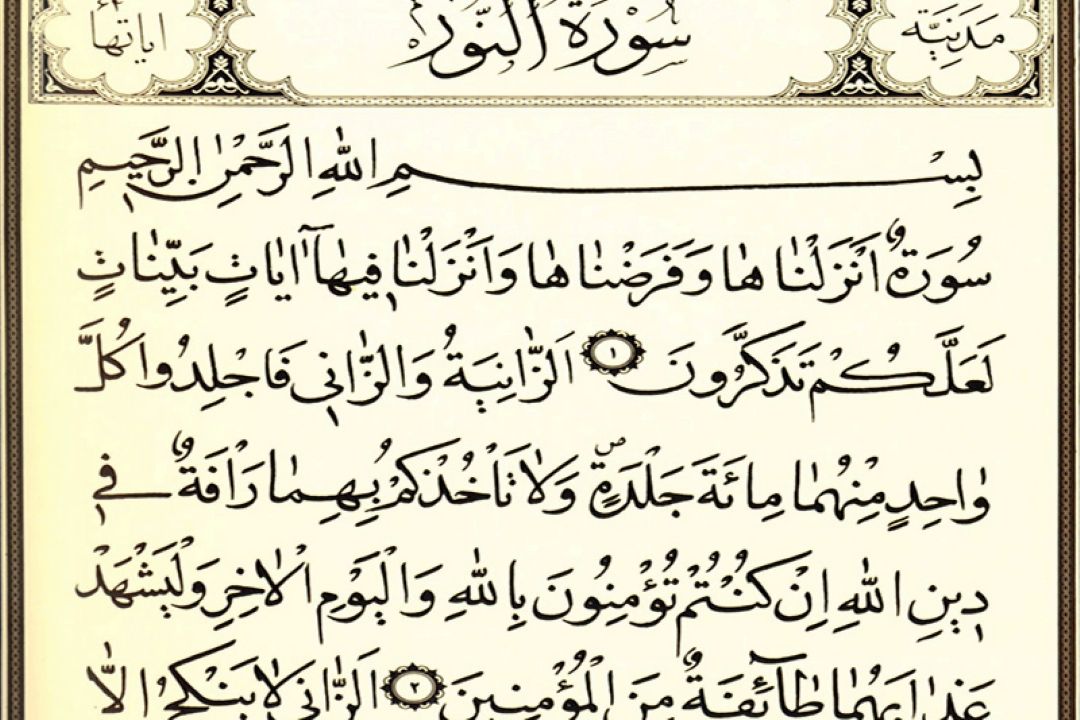 مَدَنِيَّة سُورَةُ النُّورِ اياتها
بِسْمِ اللهِ الرَّحْمٰنِ الرَّحِيمِ
سُورَةٌ اَنْزَلْنٰا هٰا وَفَرَضْنٰا هٰا وَاَنْزَلْنٰا فِيهٰآ اٰيٰاتٍ بَيِّنٰاتٍ
لَعَلَّكُمْ تَذَكَّرُونَ ١ اَلزّٰانِيَةُ وَالزّٰانِي فَاجْلِدُوا كُلَّ
وٰاحِدٍ مِنْهُمٰا مِائَةَ جَلْدَةٍ ۖ وَلٰا تَأْخُذْكُمْ بِهِمٰا رَأْفَةٌ فِي
دِينِ اللهِ اِنْ كُنْتُمْ تُؤْمِنُونَ بِاللهِ وَالْيَوْمِ الْاٰخِرِ وَلْيَشْهَدْ
عَذٰابَهُمٰا طٰآئِفَةٌ مِنَ الْمُؤْمِنِينَ ٢ اَلزّٰانِي لٰا يَنْكِحُ اِلّٰا